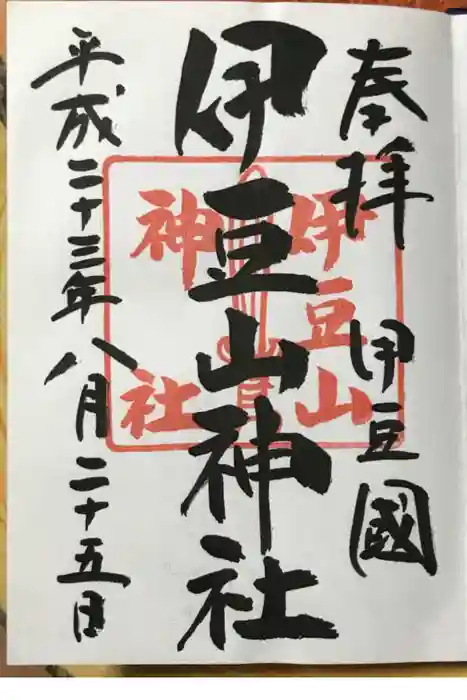 奉拝 伊豆國
伊豆山神社
平成二十三年八月二十五日
伊豆山
神社